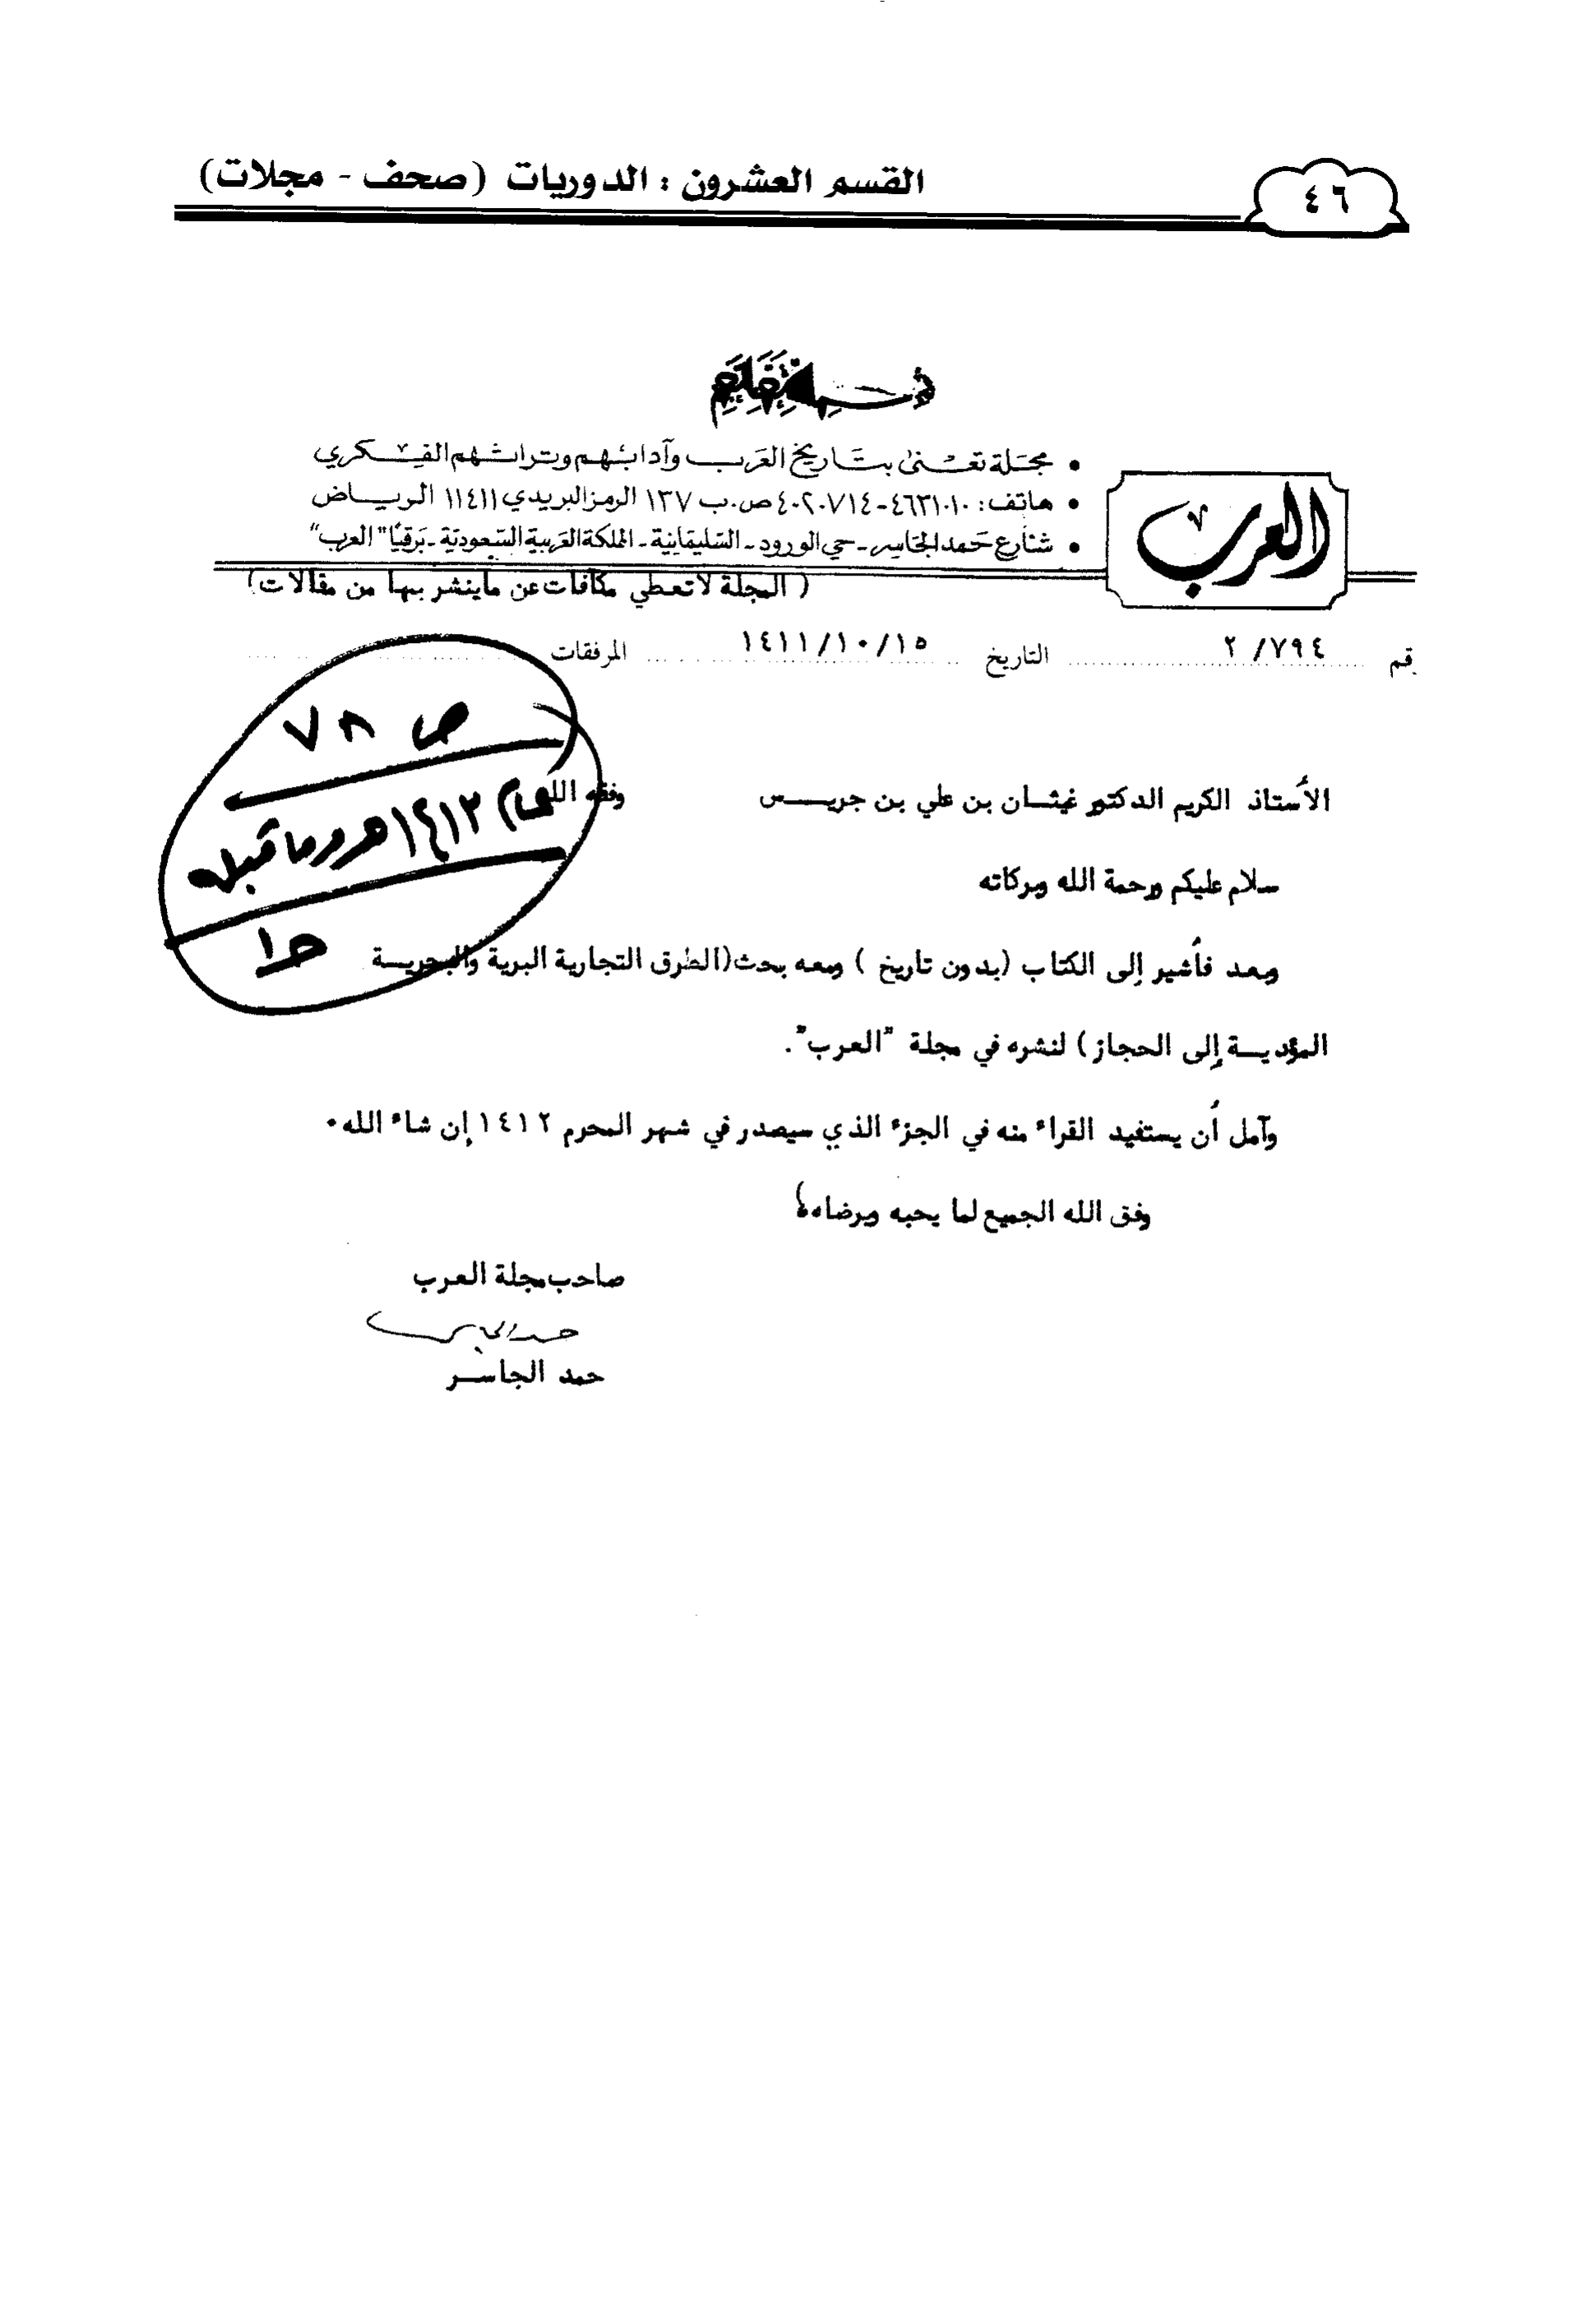 القسم العشرون : الدوريات (صحف - مجلات)
٤٦
• مجلة تعنى بتاريخ العرب وآدابهم وتراثهم الفكري
• هاتف: ٤٦٣١٠١٠-٤٠٢٠٧١٤ ص.ب ١٣٧ الرمز البريدي ١١٤١١ الرياض
• شارع حمد الجاسر - حي الورود - السليمانية - المملكة العربية السعودية - برقيًا "العرب"
العرب
( المجلة لاتعطي مكافآت عن ماينشر بها من مقالات)
قم ٢/٧٩٤ التاريخ ١٤١١/١٠/١٥ المرفقات
ص ٧٨
عام ١٤١٢هـ وما قبله
ح١
الأستاذ الكريم الدكتور غيثـان بن علي بن جريـس وفقه الله
سلام عليكم ورحمة الله وبركاته
وبعد فأشير إلى الكتاب (بدون تاريخ ) ومعه بحث(الطرق التجارية البرية والبحريـة
المؤديـة إلى الحجاز) لنشره في مجلة "العرب".
وآمل أن يستفيد القراء منه في الجزء الذي سيصدر في شهر المحرم ١٤١٢ إن شاء الله٠
وفق الله الجميع لما يحبه ويرضاه،
صاحب مجلة العرب
حمد الجاسر
حمد الجاسـر